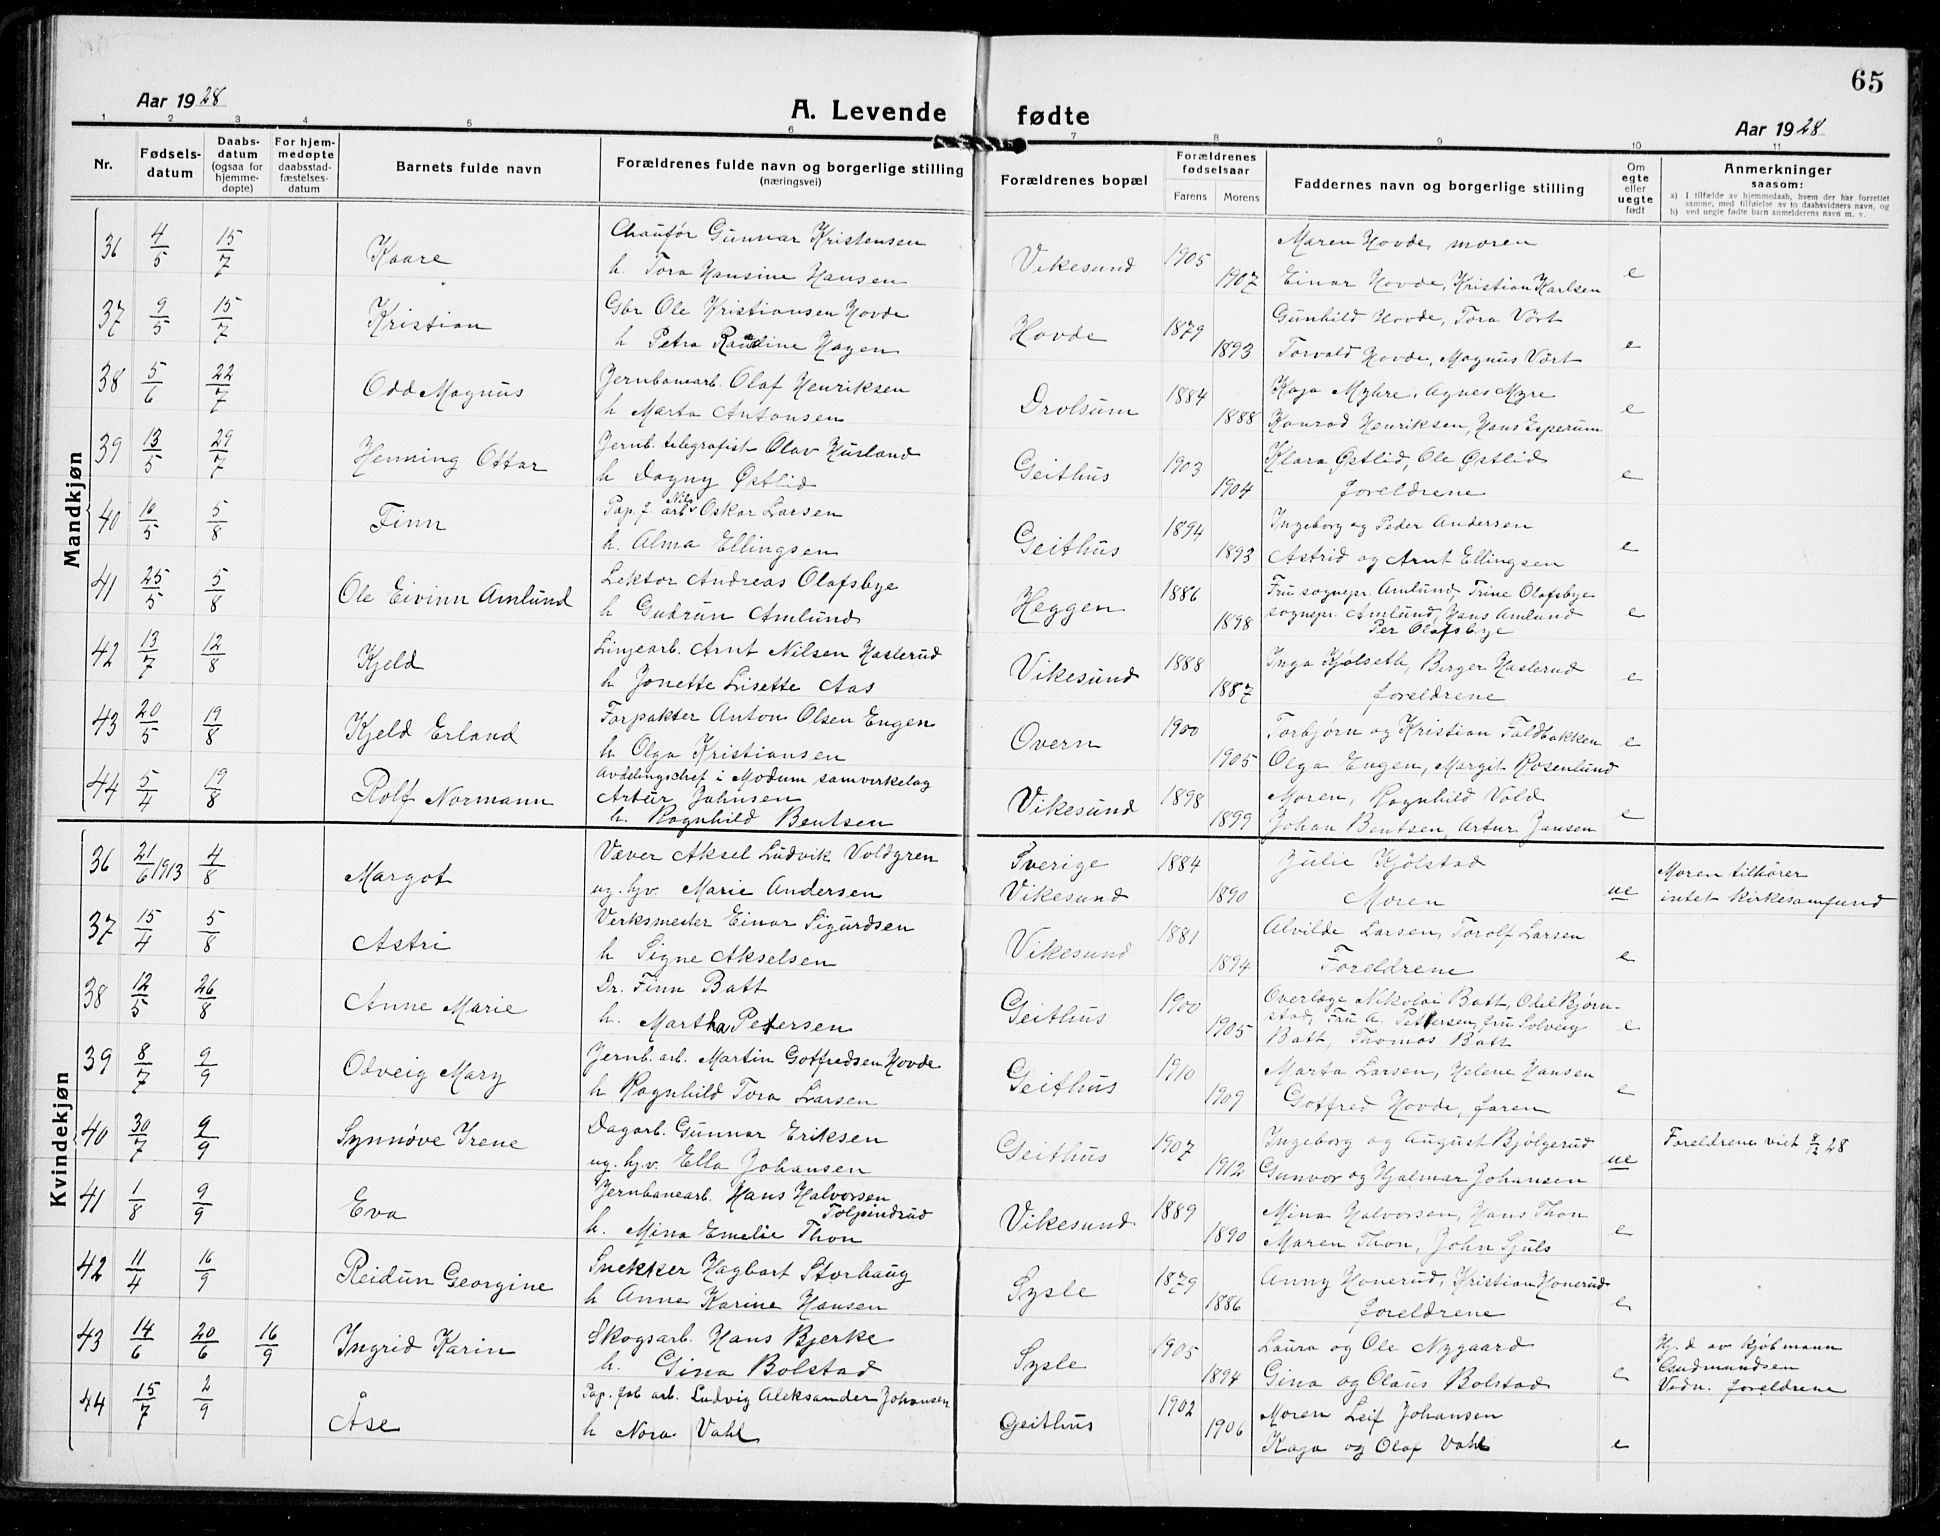 65
Aar 1928
A. Levende fødte
Aar 1928
1 2 3 4 5 6 7 8 9 10 11
Nr.
Fødsels-
datum
Daabs-
datum
(ogsaa for
hjemme-
døpte)
For hjem-
medøpte
daabsstad-
fæstelses-
datum
Barnets fulde navn
Forældrenes fulde navn og borgerlige stilling
(næringsvei)
Forældrenes bopæl
Forældrenes
fødselsaar
Farens Morens
Faddernes navn og borgerlige stilling
Om
egte
eller
uegte
født
Anmerkninger
saasom:
a) I tilfælde av hjemmedaab, hvem der har forrettet
samme, med tilføielse av to daabsvidners navn, og
b) ved uegte fødte barn anmelderens navn m. v.
Mandkjøn
36 4/5 15/7 Kaare
Chaufør Gunnar Kristensen
h. Tora Hansine Hansen
Vikesund 1905 1907
Maren Hovde, moren
Einar Hovde, Kristian Karlsen
e
37 9/5 15/7 Kristian
Gbr Ole Kristiansen Hovde
h Petra Randine Hagen
Hovde 1879 1893
Gunhild Hovde, Tora Vört
Torvald Hovde, Magnus Vört
e
38 5/6 22/7 Odd Magnus
Jernbanearb. Olaf Henriksen
h Marta Antonsen
Drolsum 1884 1888
Kaja Myhre, Agnes Myre
Konrad Henriksen, Hans Esperum
e
39 13/5 29/7 Henning Ottar
Jernb. telegrafist Olav Husland
h Dagny Østlid
Geithus 1903 1904
Klara Østlid, Ole Østlid
foreldrene
e
40 16/5 5/8 Finn
Pap. f arb. Nils Oskar Larsen
h. Alma Ellingsen
Geithus 1894 1893
Ingeborg og Peder Andersen
Astrid og Arnt Ellingsen
e
41 25/5 5/8 Ole Eivinn Amlund
Lektor Andreas Olafsbye
h Gudrun Amlund
Heggen 1886 1898
Fru sognepr. Amlund, Trine Olafsbye
sognepr. Amlund, Hans Amlund
Per Olafsbye
e
42 13/7 12/8 Kjeld
Linjearb. Arnt Nilsen Haslerud
h Jonette Lisette Aas
Vikesund 1888 1887
Inga Kjølseth, Berger Haslerud
foreldrene
e
43 20/5 19/8 Kjeld Erland
Forpakter Anton Olsen Engen
h Olga Kristiansen
Overn 1900 1905
Torbjørn og Kristian Foldbakken
Olga Engen, Margit Rosenlund
e
44 5/4 19/8 Rolf Normann
Avdelingschef i Modum samvirkelag
Artur Johnsen
h. Ragnhild Bentsen
Vikesund 1898 1899
Moren, Ragnhild Vold
Johan Bentsen, Artur Jansen
e
Kvindekjøn
36 21/6 1913 4/8 Margot
Væver Aksel Ludvik Voldgren
ug. hjv. Marie Andersen
Sverige
Vikesund 1884 1890
Julie Kjølstad
Moren
ue
Moren tilhører
intet kirkesamfund
37 15/4 5/8 Astri
Verksmester Einar Sigurdsen
h Signe Akselsen
Vikesund 1881 1894
Alvilde Larsen, Torolf Larsen
Foreldrene
e
38 12/5 26/8 Anne Marie
Dr. Finn Batt
h. Martha Petersen
Geithus 1900 1905
Overlæge Nikolai Batt, Odd Bjørn-
stad, Fru A. Pettersen, fru Solveig
Batt, Thomas Batt
e
39 8/7 9/9 Odveig Mary
Jernb. arb. Martin Gotfredsen Hovde
h Ragnhild Tora Larsen
Geithus 1910 1909
Marta Larsen, Helene Hansen
Gotfred Hovde, faren
e
40 30/7 9/9 Synnøve Irene
Dagarb. Gunnar Eriksen
ug. hjv. Ella Johansen
Geithus 1907 1912
Ingeborg og August Bjølgerud
Gunvor og Hjalmar Johansen
ue
Foreldrene viet 8/12 28
41 1/8 9/9 Eva
Jernbanearb. Hans Halvorsen
Tolpindrud
h. Mina Emelie Thon
Vikesund 1889 1890
Mina Halvorsen, Hans Thon
Maren Thon, John Sjuls
e
42 11/4 16/9 Reidun Georgine
Snekker Hagbart Storhaug
h Anne Karine Hansen
Sysle 1879 1886
Anny Honerud, Kristian Honerud
foreldrene
e
43 14/6 20/6 16/9 Ingrid Karin
Skogsarb. Hans Bjerke
h. Gina Bolstad
Sysle 1905 1894
Laura og Ole Nygaard
Gina og Olaus Bolstad
e
Hj. d av kjøbmann
Gudmundsen
Vidn. foreldrene
44 15/7 2/9 Åse
Pap. fab arb. Ludvig Aleksander Johansen
h Nora Vahl
Geithus 1902 1906
Moren Leif Johansen
Kaja og Olaf Vahl
e